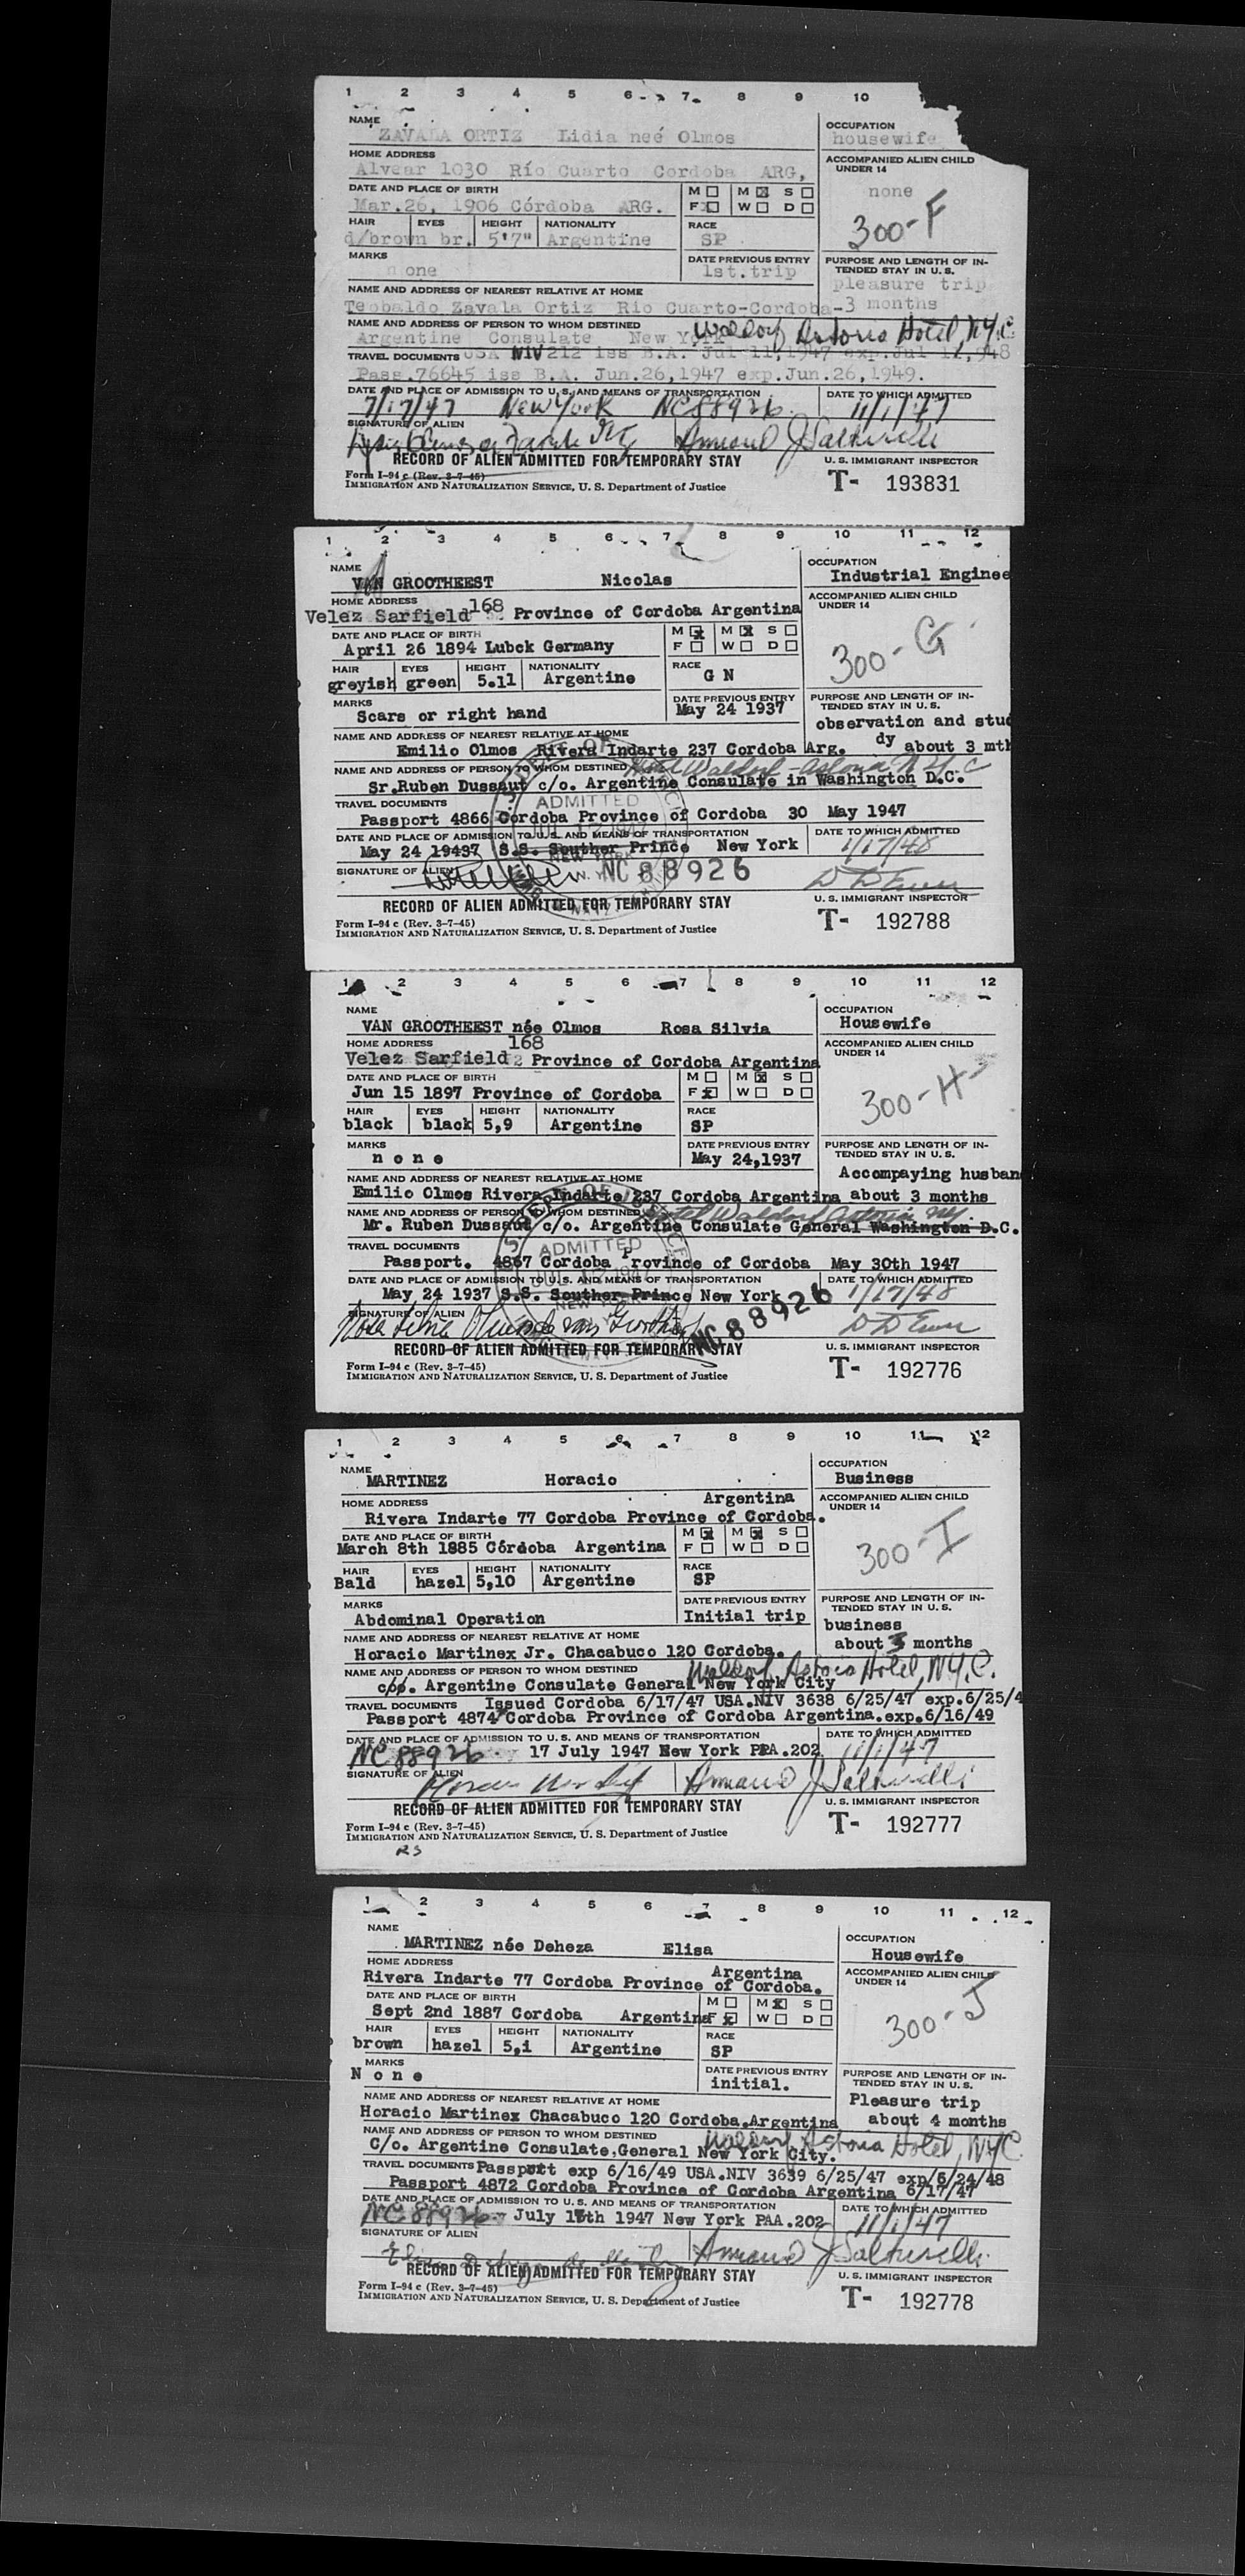 1 2 3 4 5 6 7 8 9 10
NAME
ZAVALA ORTIZ Lidia neé Olmos
OCCUPATION
housewife
HOME ADDRESS
Alvear 1030 Río Cuarto Cordoba ARG,
ACCOMPANIED ALIEN CHILD
UNDER 14
none
DATE AND PLACE OF BIRTH
Mar.26, 1906 Córdoba ARG.
M M S
F W D
300-F
HAIR EYES HEIGHT NATIONALITY RACE
d/brown br. 5'7" Argentine SP
MARKS
none
DATE PREVIOUS ENTRY
1st.trip
PURPOSE AND LENGTH OF IN-
TENDED STAY IN U. S.
pleasure trip
NAME AND ADDRESS OF NEAREST RELATIVE AT HOME
Teobaldo Zavala Ortiz Rio Cuarto-Cordoba-3 months
NAME AND ADDRESS OF PERSON TO WHOM DESTINED
Argentine Consulate New York Waldorf Astoria Hotel, N.Y.C.
TRAVEL DOCUMENTS USA NIV 212 iss B.A. Jul 11,1947 exp.Jul 11,948
Pass.76645 iss B.A. Jun.26,1947 exp.Jun.26,1949.
DATE AND PLACE OF ADMISSION TO U. S. AND MEANS OF TRANSPORTATION DATE TO WHICH ADMITTED
7/17/47 New York NC 88926 11/1/47
SIGNATURE OF ALIEN
RECORD OF ALIEN ADMITTED FOR TEMPORARY STAY U. S. IMMIGRANT INSPECTOR
Form I-94 c (Rev. 3-7-45)
IMMIGRATION AND NATURALIZATION SERVICE, U. S. Department of Justice
T- 193831
1 2 3 4 5 6 7 8 9 10 11 12
NAME
VAN GROOTHEEST Nicolas
OCCUPATION
Industrial Enginee
HOME ADDRESS
Velez Sarfield 168 Province of Cordoba Argentina
ACCOMPANIED ALIEN CHILD
UNDER 14
DATE AND PLACE OF BIRTH
April 26 1894 Lubck Germany
M M S
F W D
300-G
HAIR EYES HEIGHT NATIONALITY RACE
greyish green 5.11 Argentine G N
MARKS
Scars or right hand
DATE PREVIOUS ENTRY
May 24 1937
PURPOSE AND LENGTH OF IN-
TENDED STAY IN U. S.
observation and stu
dy about 3 mth
NAME AND ADDRESS OF NEAREST RELATIVE AT HOME
Emilio Olmos Rivera Indarte 237 Cordoba Arg.
NAME AND ADDRESS OF PERSON TO WHOM DESTINED Hotel Waldorf-Astoria N.Y.C
Sr.Ruben Dussaut c/o. Argentine Consulate in Washington D.C.
TRAVEL DOCUMENTS
Passport 4866 Cordoba Province of Cordoba 30 May 1947
DATE AND PLACE OF ADMISSION TO U. S. AND MEANS OF TRANSPORTATION DATE TO WHICH ADMITTED
May 24 19437 S.S. Souther Prince New York 1/17/48
ADMITTED
NEW YORK
N. Y.
SIGNATURE OF ALIEN
NC 88926
RECORD OF ALIEN ADMITTED FOR TEMPORARY STAY U. S. IMMIGRANT INSPECTOR
Form I-94 c (Rev. 3-7-45)
IMMIGRATION AND NATURALIZATION SERVICE, U. S. Department of Justice
T- 192788
1 2 3 4 5 6 7 8 9 10 11 12
NAME
VAN GROOTHEEST née Olmos Rosa Silvia
OCCUPATION
Housewife
HOME ADDRESS
Velez Sarfield 168 Province of Cordoba Argentina
ACCOMPANIED ALIEN CHILD
UNDER 14
DATE AND PLACE OF BIRTH
Jun 15 1897 Province of Cordoba
M M S
F W D
300-H
HAIR EYES HEIGHT NATIONALITY RACE
black black 5,9 Argentine SP
MARKS
none
DATE PREVIOUS ENTRY
May 24,1937
PURPOSE AND LENGTH OF IN-
TENDED STAY IN U. S.
Accompaying husban
NAME AND ADDRESS OF NEAREST RELATIVE AT HOME
Emilio Olmos Rivera Indarte 237 Cordoba Argentina about 3 months
NAME AND ADDRESS OF PERSON TO WHOM DESTINED Hotel Waldorf Astoria NY.
Mr. Ruben Dussaut c/o. Argentine Consulate General Washington D.C.
TRAVEL DOCUMENTS
Passport. 4867 Cordoba Province of Cordoba May 30th 1947
DATE AND PLACE OF ADMISSION TO U. S. AND MEANS OF TRANSPORTATION DATE TO WHICH ADMITTED
May 24 1937 S.S. Souther Prince New York 1/17/48
ADMITTED
NEW YORK
SIGNATURE OF ALIEN
NC 88926
RECORD OF ALIEN ADMITTED FOR TEMPORARY STAY U. S. IMMIGRANT INSPECTOR
Form I-94 c (Rev. 3-7-45)
IMMIGRATION AND NATURALIZATION SERVICE, U. S. Department of Justice
T- 192776
1 2 3 4 5 6 7 8 9 10 11 12
NAME
MARTINEZ Horacio
OCCUPATION
Business
HOME ADDRESS Argentina
Rivera Indarte 77 Cordoba Province of Cordoba.
ACCOMPANIED ALIEN CHILD
UNDER 14
DATE AND PLACE OF BIRTH
March 8th 1885 Córdoba Argentina
M M S
F W D
300-I
HAIR EYES HEIGHT NATIONALITY RACE
Bald hazel 5,10 Argentine SP
MARKS
Abdominal Operation
DATE PREVIOUS ENTRY
Initial trip
PURPOSE AND LENGTH OF IN-
TENDED STAY IN U. S.
business
about 3 months
NAME AND ADDRESS OF NEAREST RELATIVE AT HOME
Horacio Martinex Jr. Chacabuco 120 Cordoba.
NAME AND ADDRESS OF PERSON TO WHOM DESTINED Waldorf Astoria Hotel, N.Y.C.
c/o. Argentine Consulate General New York City
TRAVEL DOCUMENTS Issued Cordoba 6/17/47 USA.NIV 3638 6/25/47 exp.6/25/4
Passport 4874 Cordoba Province of Cordoba Argentina.exp.6/16/49
DATE AND PLACE OF ADMISSION TO U. S. AND MEANS OF TRANSPORTATION DATE TO WHICH ADMITTED
NC 88926 17 July 1947 New York PAA.202 11/1/47
SIGNATURE OF ALIEN
RECORD OF ALIEN ADMITTED FOR TEMPORARY STAY U. S. IMMIGRANT INSPECTOR
Form I-94 c (Rev. 3-7-45)
IMMIGRATION AND NATURALIZATION SERVICE, U. S. Department of Justice
T- 192777
RS
1 2 3 4 5 6 7 8 9 10 11 12
NAME
MARTINEZ née Deheza Elisa
OCCUPATION
Housewife
HOME ADDRESS Argentina
Rivera Indarte 77 Cordoba Province of Cordoba.
ACCOMPANIED ALIEN CHILD
UNDER 14
DATE AND PLACE OF BIRTH
Sept 2nd 1887 Cordoba Argentina
M M S
F W D
300-J
HAIR EYES HEIGHT NATIONALITY RACE
brown hazel 5,1 Argentine SP
MARKS
None
DATE PREVIOUS ENTRY
initial.
PURPOSE AND LENGTH OF IN-
TENDED STAY IN U. S.
Pleasure trip
about 4 months
NAME AND ADDRESS OF NEAREST RELATIVE AT HOME
Horacio Martinez Chacabuco 120 Cordoba,Argentina
NAME AND ADDRESS OF PERSON TO WHOM DESTINED Waldorf Astoria Hotel, NYC
C/o. Argentine Consulate,General New York City.
TRAVEL DOCUMENTS Passport exp 6/16/49 USA.NIV 3639 6/25/47 exp/6/24/48
Passport 4872 Cordoba Province of Cordoba Argentina 6/17/47
DATE AND PLACE OF ADMISSION TO U. S. AND MEANS OF TRANSPORTATION DATE TO WHICH ADMITTED
NC 88926 July 17th 1947 New York PAA.202 11/1/47
SIGNATURE OF ALIEN
RECORD OF ALIEN ADMITTED FOR TEMPORARY STAY U. S. IMMIGRANT INSPECTOR
Form I-94 c (Rev. 3-7-45)
IMMIGRATION AND NATURALIZATION SERVICE, U. S. Department of Justice
T- 192778